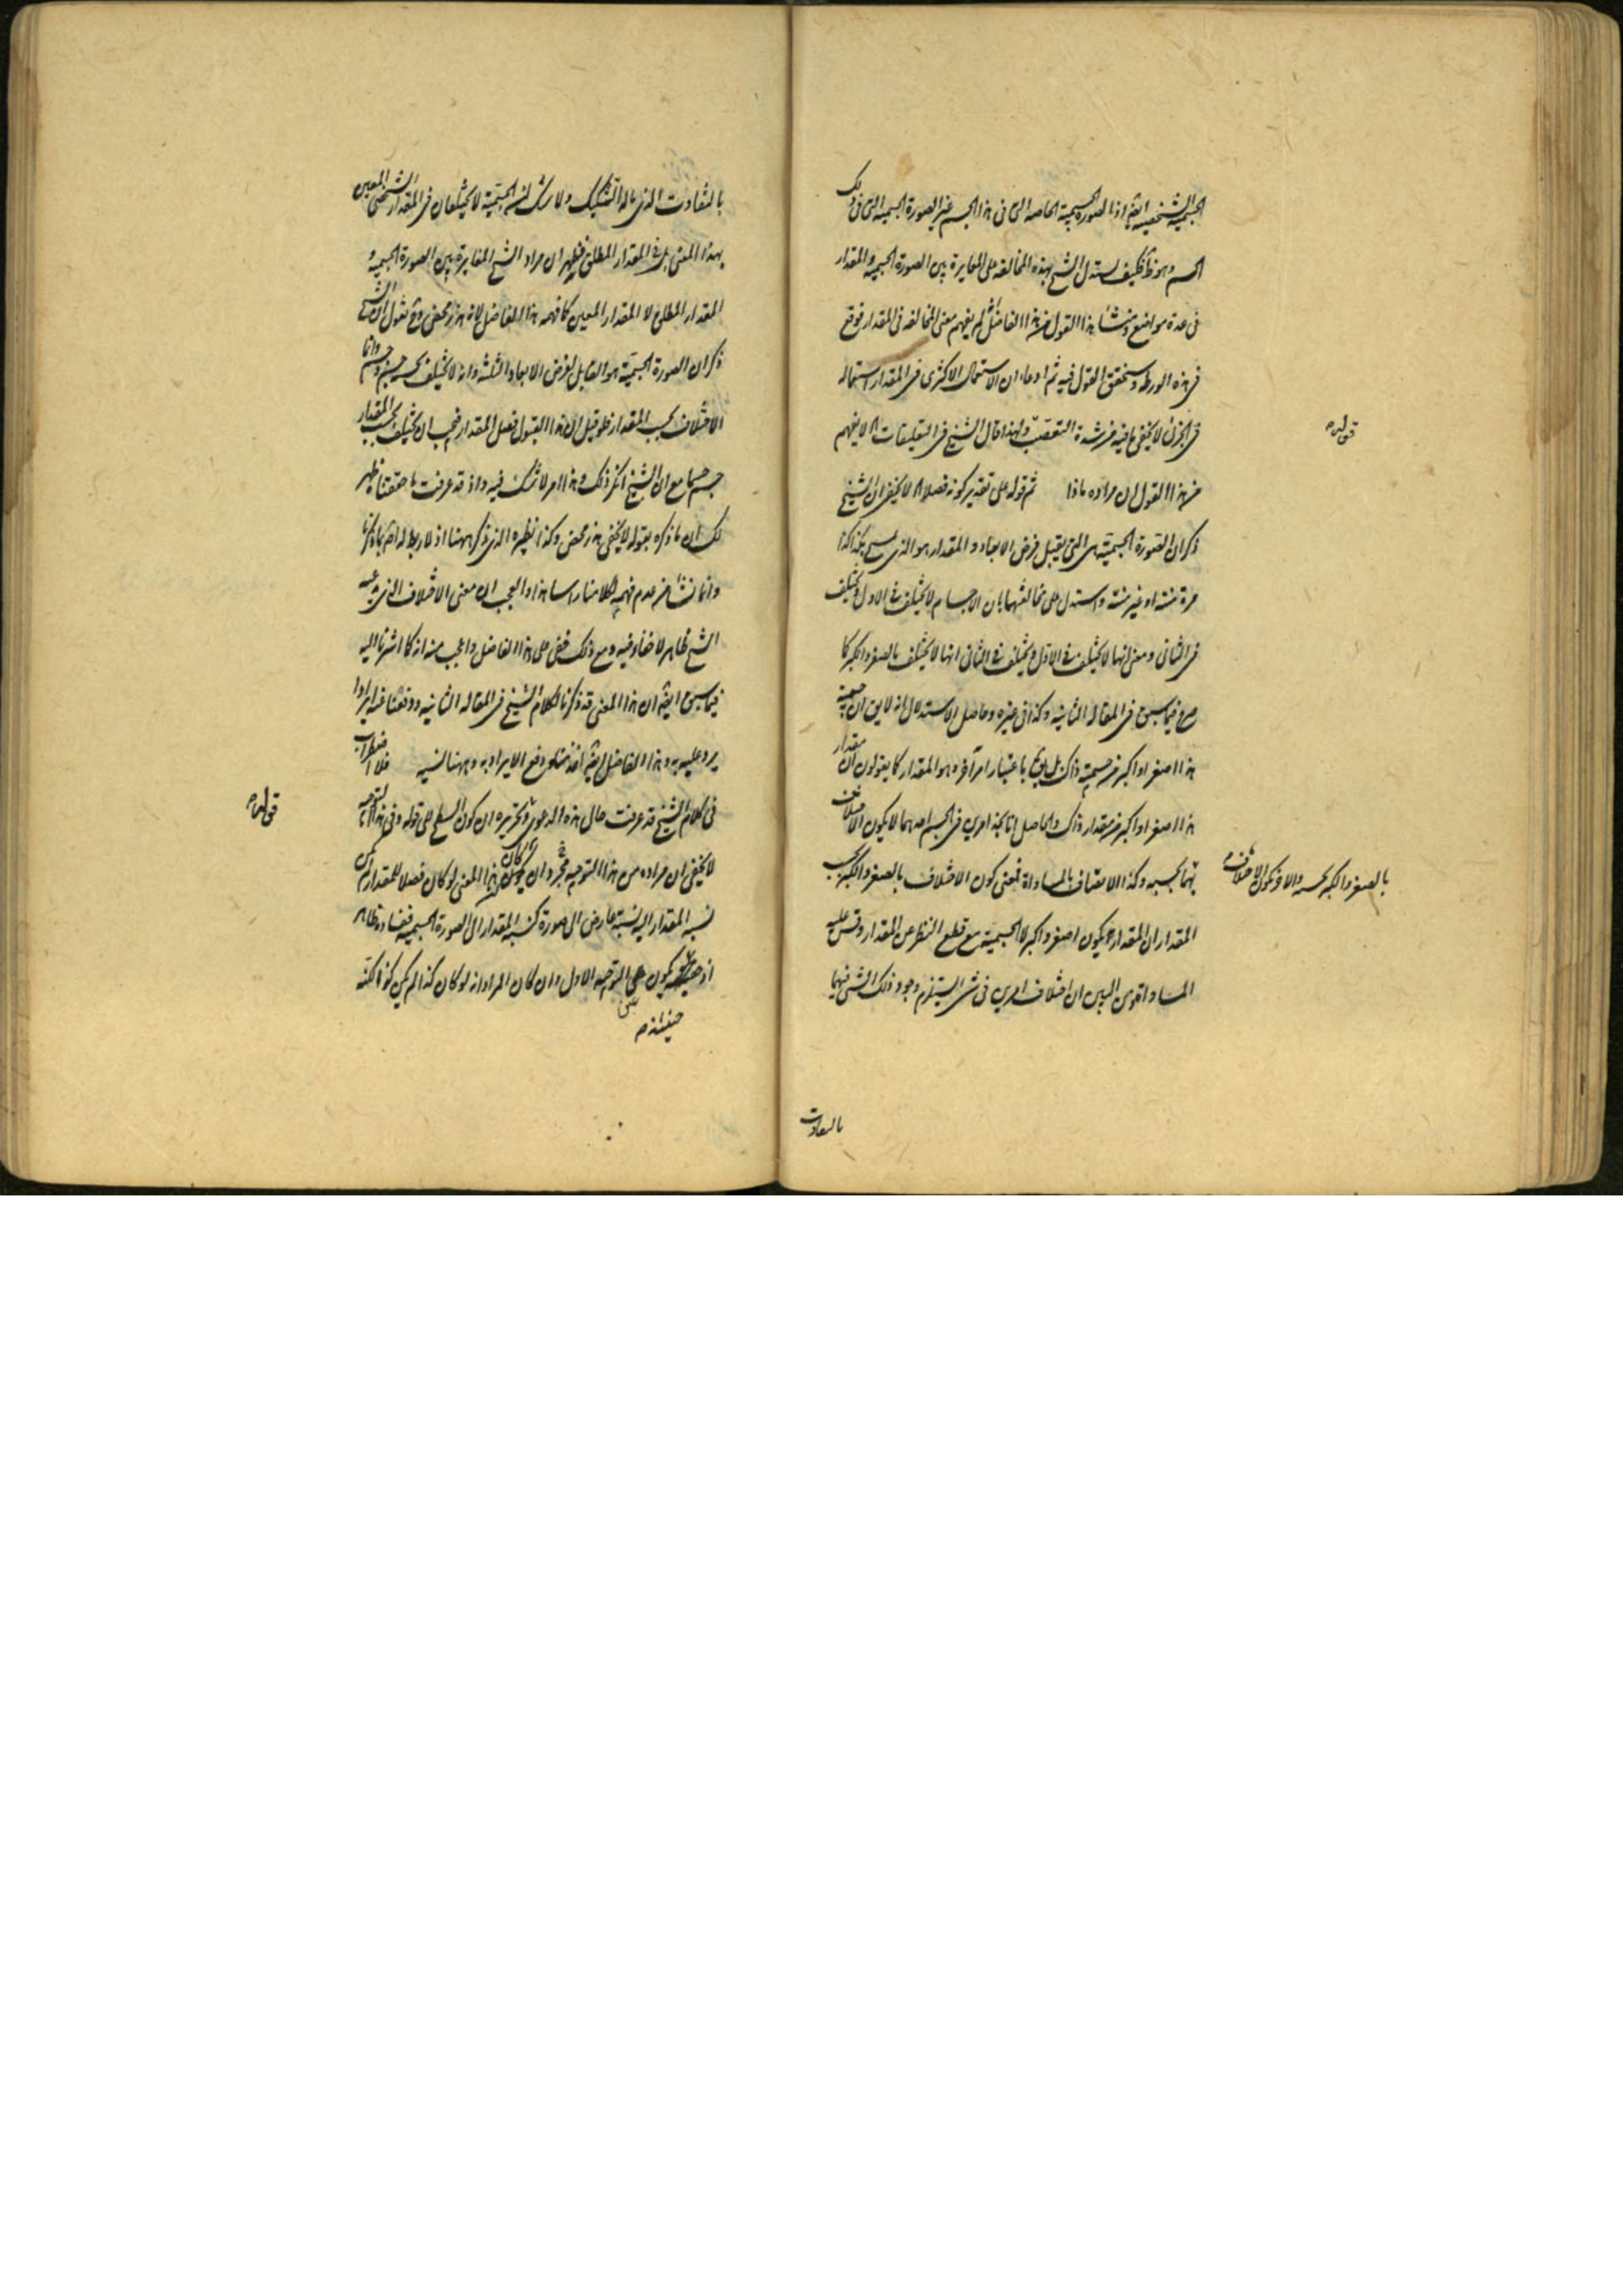 الجسمية الشخصية ايضا اذا الصورة الجسمية الخاصة التى فى هذا الجسم غير الصورة الجسمية التى فى ذلك
الجسم وهو ظ فكيف يستدل الشيخ بهذه المخالفة على المغايرة بين الصورة الجسمية والمقدار
فى عدة مواضع ومنشأ هذا القول من هذا الفاضل انه لم يفهم معنى المخالفة فى المقدار فوقع
فى هذه الورطة وسنحقق القول فيه ثم ادعاء ان الاستعمال الاكثرى فى المقدار استعماله
فى الجزئى لا يخفى ما فيه من شدة التعصب ولهذا قال الشيخ فى التعليقات لا يفهم
قوله
من هذا القول ان مراده ماذا ثم قوله على تقدير كونه فصلا لا يخفى ان الشيخ
ذكر ان الصورة الجسمية هى التى يقبل فرض الابعاد والمقدار هو الذى يمسح بكذا كذا
مرة متناه او غير متناه واستدل على مخالفتهما بان الاجسام لا يختلف فى الاول ويختلف
فى الثانى ومعنى انها لا يختلف فى الاول ويختلف فى الثانى انها لا يختلف بالصغر والكبر كما
صرح فيما سبق فى المقالة الثانية وكذا فى غيره وحاصل الاستدلال انه لا يق ان جسمية
هذا اصغر او اكبر من جسمية ذاك بل يق باعتبار امر آخر وهو المقدار كما يقولون ان مقدار
هذا اصغر او اكبر من مقدار ذاك والحاصل انا نجد امرين فى الجسم احدهما لا يكون الاختلاف
بالصغر والكبر بحسبه والآخر يكون الاختلاف
بهما بحسبه وكذا الاتصاف بالمساواة فمعنى كون الاختلاف بالصغر والكبر بحسب
المقدار ان المقدار يكون اصغر واكبر لا الجسمية مع قطع النظر عن المقدار وقس عليه
المساواة ومن البين ان اختلاف امرين فى شىء يستلزم وجود ذلك الشىء فيهما
بالتفاوت
بالتفاوت الذى ماله التشكيك ولا شك ان الجسمية لا يختلفان فى المقدار الشخصى المعين
بهذا المعنى بل فى المقدار المطلق فظهر ان مراد الشيخ المغايرة بين الصورة الجسمية و
المقدار المطلق لا المقدار المعين كما فهمه هذا الفاضل لانه هذر محض وح نقول ان الشيخ
ذكر ان الصورة الجسمية هو القابل لفرض الابعاد الثلثة وانه لا يختلف بحسبه جسم وجسم وانما
الاختلاف بحسب المقدار فلو قيل ان هذا القبول فصل المقدار فيجب ان يختلف بحسب المقدار
جسم جسما مع ان الشيخ انكر ذلك وهذا امر لا شك فيه واذ قد عرفت ما حققنا ظهر
لك ان ما ذكره بقوله لا يخفى هذر محض وكذا نظيره الذى ذكر ههنا اذ لا ربط له اصلا بما ذكرنا
وانما نشأ من عدم فهمه كلامنا راسا هذا والعجب ان معنى الاختلاف الذى يدعيه
الشيخ ظاهر لا خفاء فيه ومع ذلك خفى على هذا الفاضل واعجب منه انه كما اشرنا اليه
فيما سبق ايضا ان هذا المعنى قد ذكرنا لكلام الشيخ فى المقالة الثانية ودفعنا عنه ايرادا
يرد عليه به وهذا الفاضل ايضا دفع الايراد به وههنا نسيه فلا اضطراب
قوله
فى كلام الشيخ قد عرفت حال هذه الدعوى وتحريره ان كون السطح على قوله وفى هذا التوجيه
لا يخفى ان مراده من هذا التوجيه ان كان هذا المعنى لو كان فصلا للمقدار لم يكن
نسبة المقدار اليه نسبة عارض الى صورة كنسبة المقدار الى الصورة الجسمية ففساده ظاهر
اذ حينئذ يكون على التوجيه الاول وان كان المراد انه لو كان كذا لم يكن كذا لكنه
حينئذ